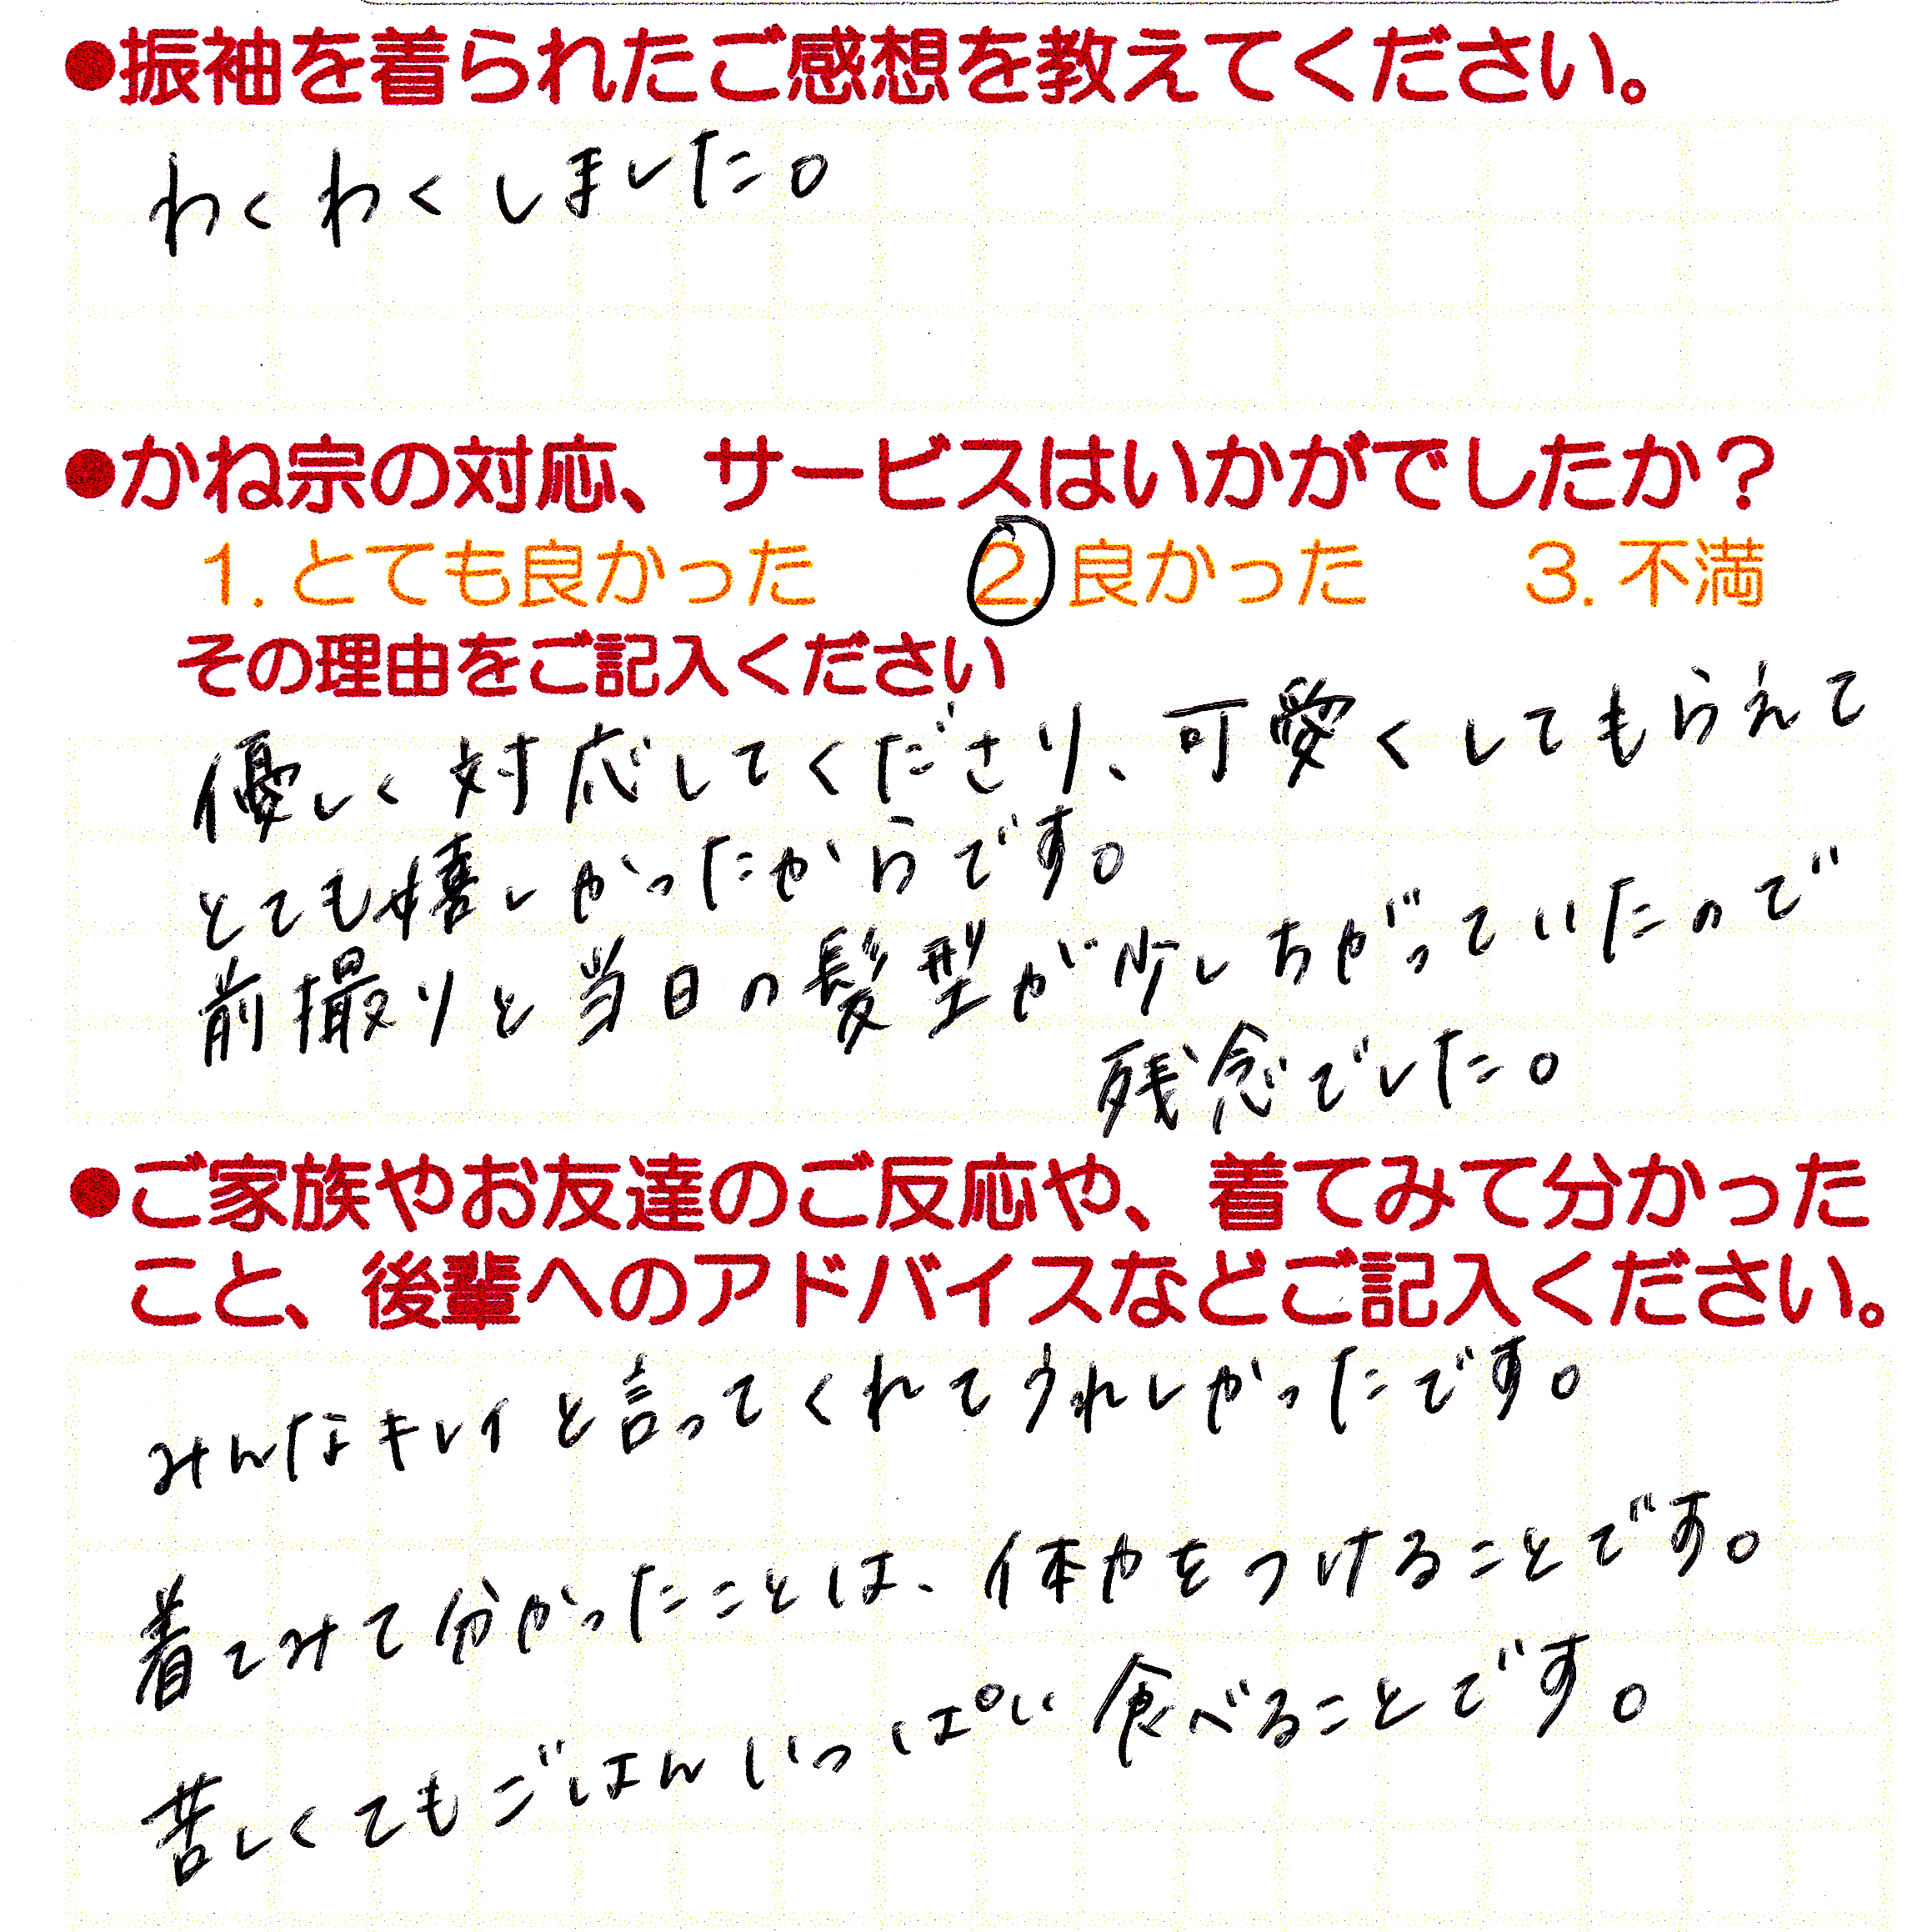 ●振袖を着られたご感想を教えてください。
わくわくしました。
●かね宗の対応、サービスはいかがでしたか？
1. とても良かった 2. 良かった 3. 不満
その理由をご記入ください
優しく対応してくださり、可愛くしてもらえて
とても嬉しかったからです。
前撮りと当日の髪型が少しちがっていたので
残念でした。
●ご家族やお友達のご反応や、着てみて分かった
こと、後輩へのアドバイスなどご記入ください。
みんなキレイと言ってくれてうれしかったです。
着てみて分かったことは、体力をつけることです。
苦しくてもごはんいっぱい食べることです。